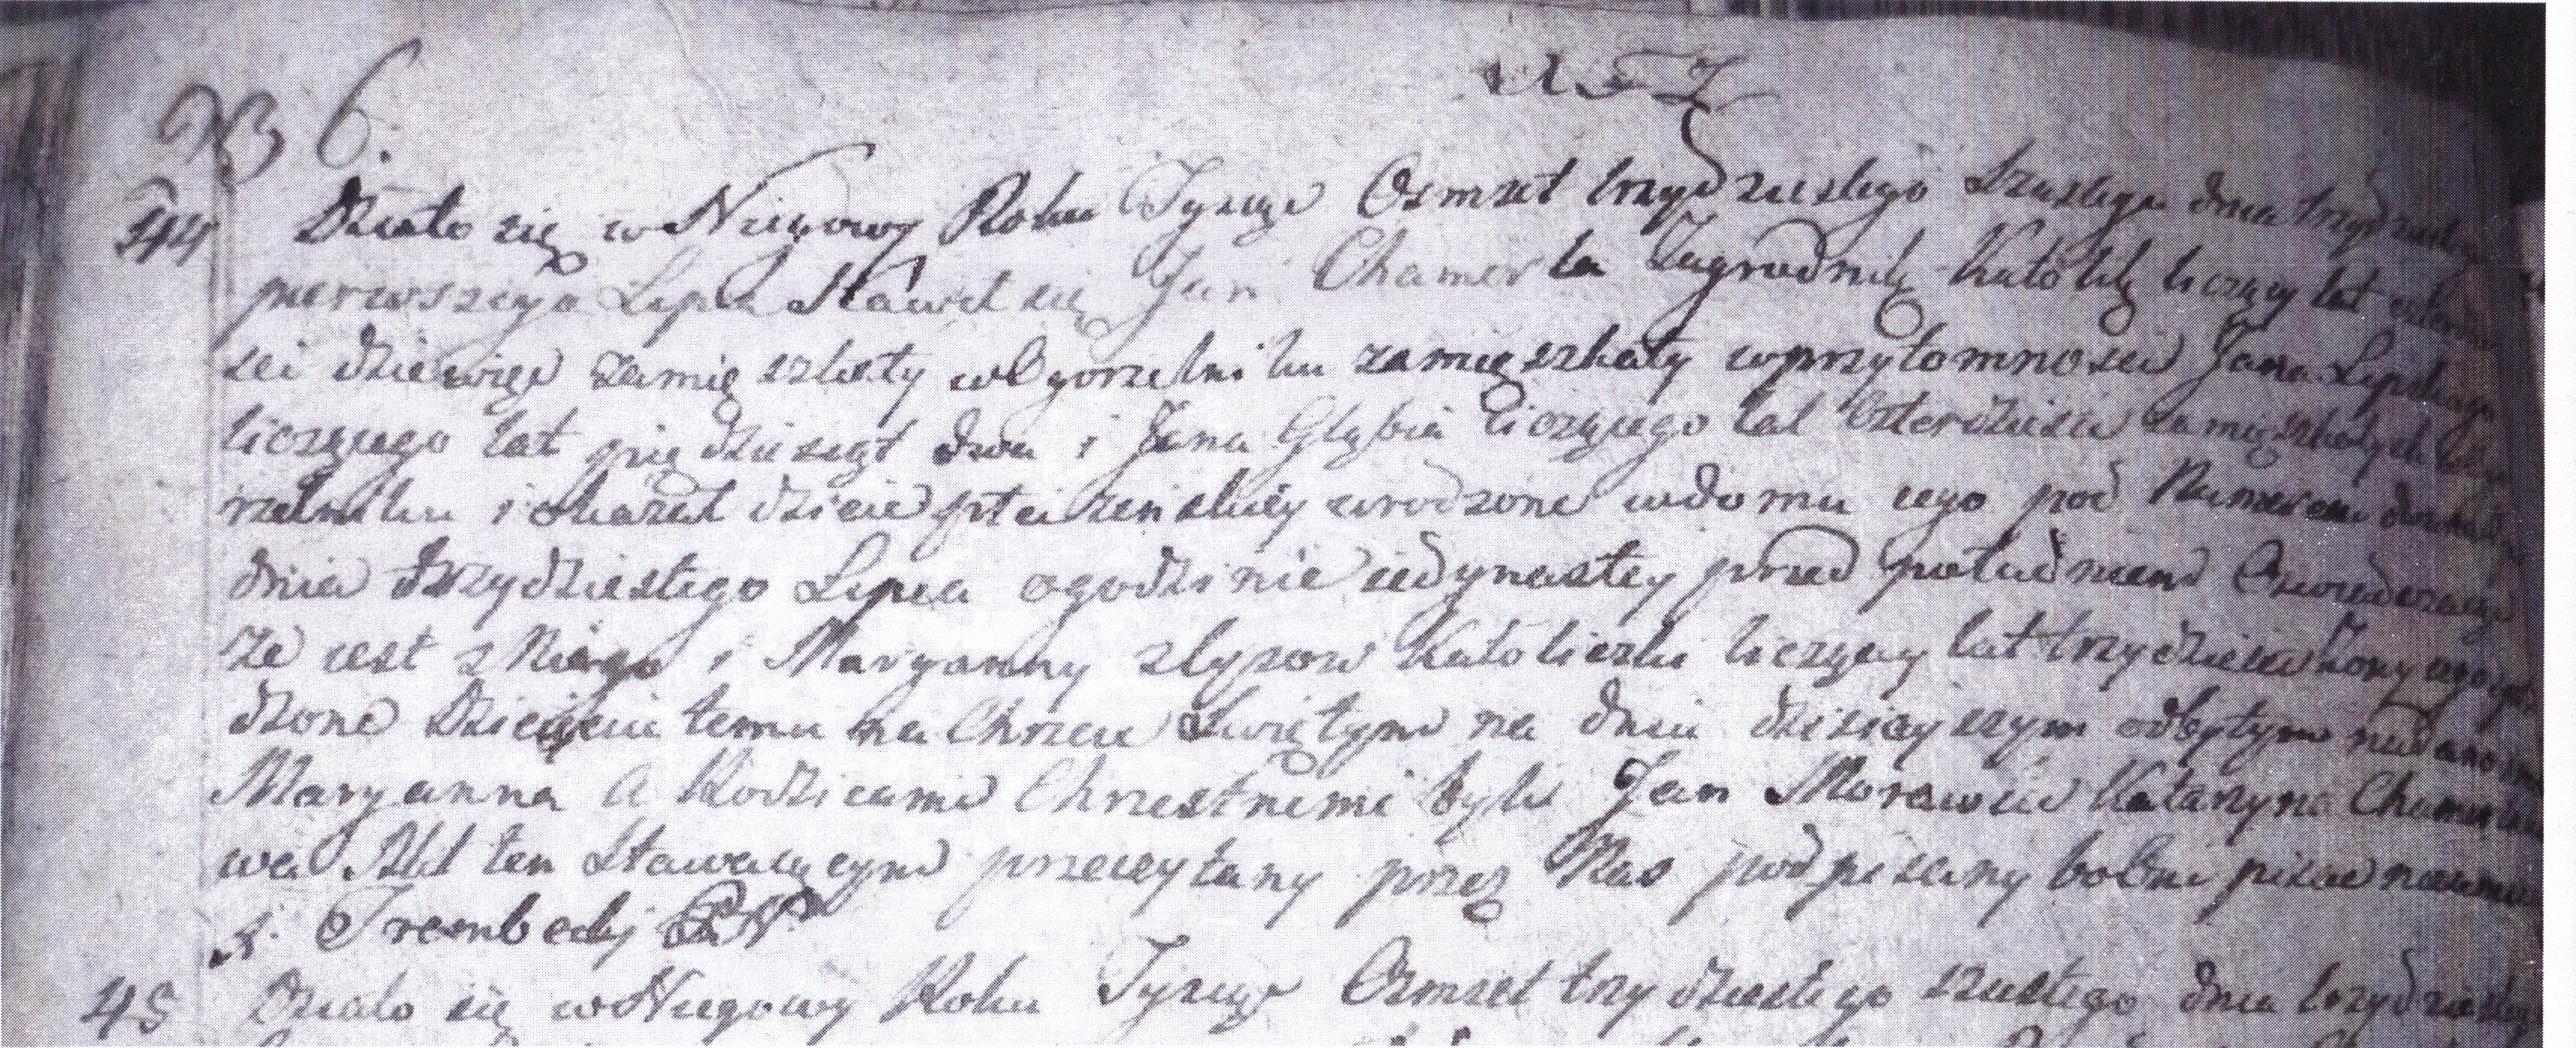 6.
44 Działo się w Niegowy Roku Tysiąc Osmset trzydziestego szustego dnia trzydziestego
pierwszego Lipca Stawił się Jan Chamerla Zagrodnik Katolik liczący lat czterdzie
sci dziewięć zamięszkały w Ogorzelniku zamięszkały w przytomnosci Jana Lipskiego
liczącego lat piędziesiąt dwa i Jana liczącego lat czterdziesci zamięszkałych
rzelniku i okazał dziecie płci żenskiey urodzone w domu iego pod Numerem
dnia trzydziestego Lipca o godzinie iedynastey przed południem Oswiadczaiąc
że iest z Niego i Maryanny z Łypsow Katoliczki liczący lat trzydziesci żony iego
dzone Dziecięciu temu na Chrzcie swiętym na dniu dzisieyszym odbytym nadano
Maryanna a Rodzicami Chrzestnemi byli Jan Morawiec Katarzyna
wa Akt ten stawaiącym przeczytany przez Nas podpisany bo oni pisać nieumie
X. Trembecki
45 Działo się w Niegowy Roku Tysiąc Osmset trzydziestego szustego dnia trzydziestego